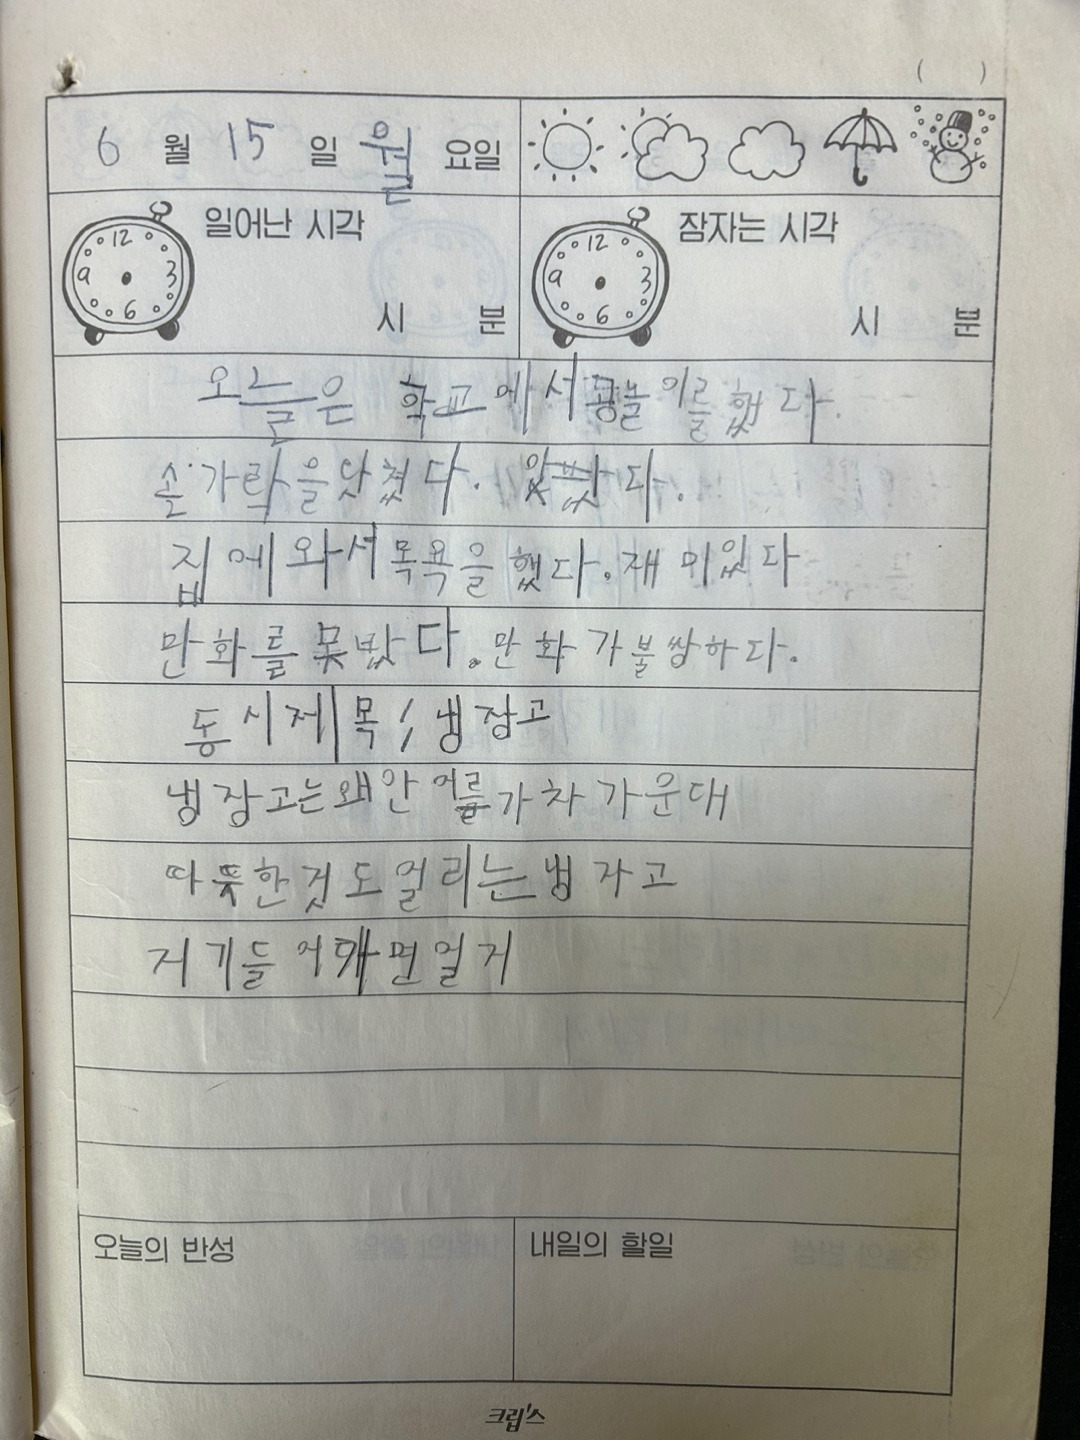 ( )
6 월 15 일 월 요일
일어난 시각
12 3 6 9
시 분
잠자는 시각
12 3 6 9
시 분
오늘은 학교에서 공놀이를 했다.
손가락을 닷쳤다. 았빴다.
집에 와서 목욕을 했다. 재미있다
만화를 못밨다. 만화가 불쌍하다.
동시제목 / 냉장고
냉장고는 왜 안 어름가 차가운대
따뜻한것도 얼리는 냉자고
저기들어가면 얼지
오늘의 반성
내일의 할일
크립스